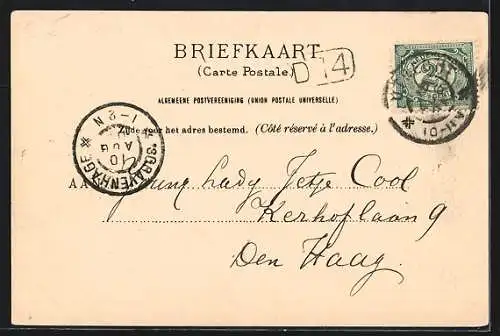 BRIEFKAART
(Carte Postale.)
D 14
ALGEMEENE POSTVEREENIGING (UNION POSTALE UNIVERSELLE)
Zijde voor het adres bestemd. (Côté réservé à l'adresse.)
'SGRAVENHAGE
10
AUG
1-2N
2½
10-11
Young Lady Jetje Cool
Kerhoflaan 9
Den Haag.